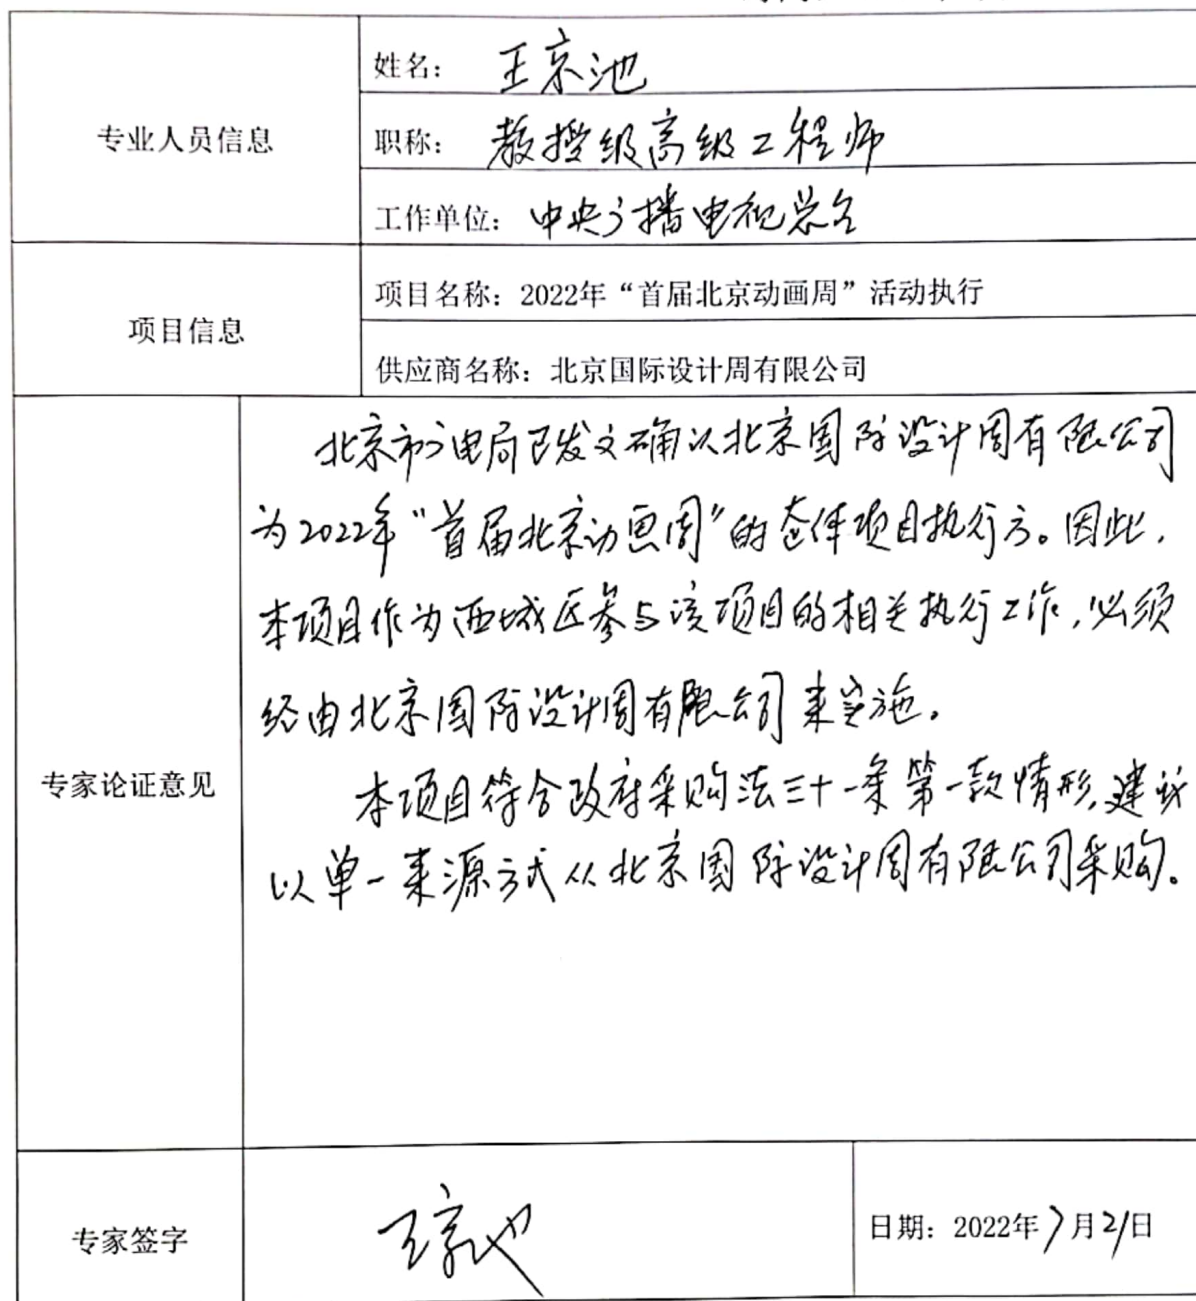 专业人员信息
姓名：王京池
职称：教授级高级工程师
工作单位：中央广播电视总台
项目信息
项目名称：2022年“首届北京动画周”活动执行
供应商名称：北京国际设计周有限公司
专家论证意见
北京市广电局已发文确认北京国际设计周有限公司
为2022年“首届北京动画周”的整体项目执行方。因此，
本项目作为西城区参与该项目的相关执行工作，必须
经由北京国际设计周有限公司来实施。
本项目符合政府采购法三十一条第一款情形，建议
以单一来源方式从北京国际设计周有限公司采购。
专家签字
王京池
日期：2022年7月21日